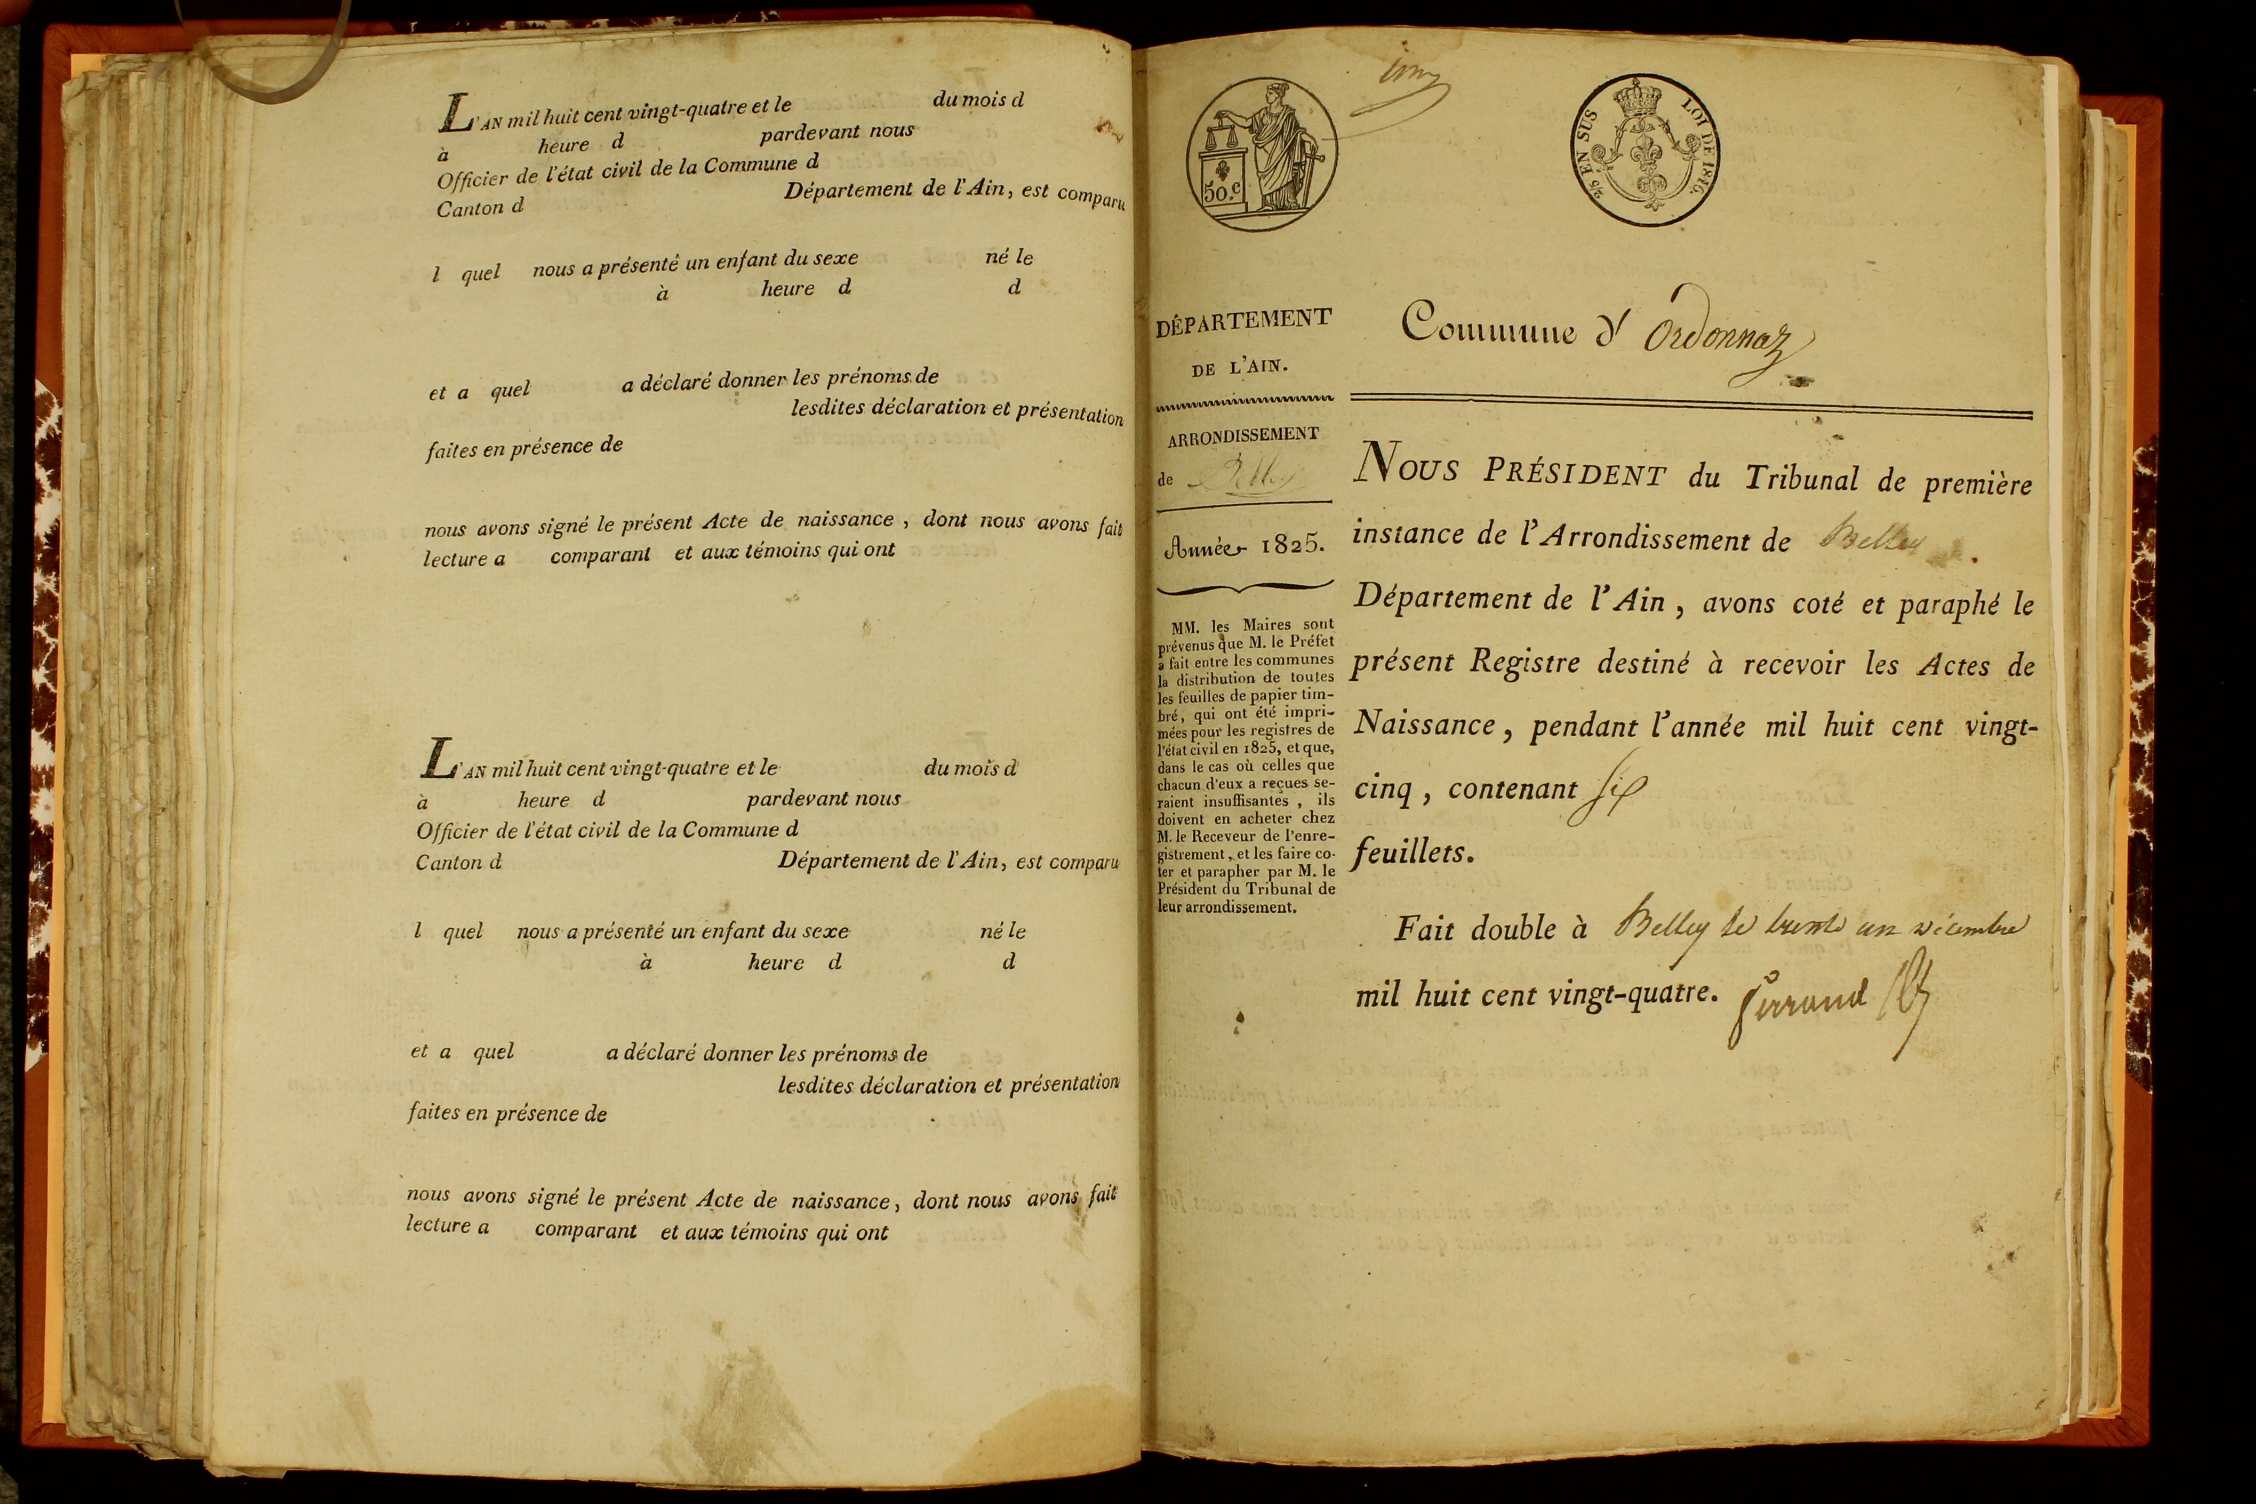 L'AN mil huit cent vingt-quatre et le du mois d
à heure d pardevant nous
Officier de l'état civil de la Commune d
Canton d Département de l'Ain, est comparu
l quel nous a présenté un enfant du sexe né le
à heure d d
et a quel a déclaré donner les prénoms de
lesdites déclaration et présentation
faites en présence de
nous avons signé le présent Acte de naissance, dont nous avons fait
lecture a comparant et aux témoins qui ont
L'AN mil huit cent vingt-quatre et le du mois d
à heure d pardevant nous
Officier de l'état civil de la Commune d
Canton d Département de l'Ain, est comparu
l quel nous a présenté un enfant du sexe né le
à heure d d
et a quel a déclaré donner les prénoms de
lesdites déclaration et présentation
faites en présence de
nous avons signé le présent Acte de naissance, dont nous avons fait
lecture a comparant et aux témoins qui ont
50.c
25 EN SUS LOI DE 1816.
DÉPARTEMENT
DE L'AIN.
ARRONDISSEMENT
de Belley
Année 1825.
MM. les Maires sont
prévenus que M. le Préfet
a fait entre les communes
la distribution de toutes
les feuilles de papier tim-
bré, qui ont été impri-
mées pour les registres de
l'état civil en 1825, et que,
dans le cas où celles que
chacun d'eux a reçues se-
raient insuffisantes, ils
doivent en acheter chez
M. le Receveur de l'enre-
gistrement, et les faire co-
ter et parapher par M. le
Président du Tribunal de
leur arrondissement.
Commune d'Ordonnaz
NOUS PRÉSIDENT du Tribunal de première
instance de l'Arrondissement de Belley
Département de l'Ain, avons coté et paraphé le
présent Registre destiné à recevoir les Actes de
Naissance, pendant l'année mil huit cent vingt-
cinq, contenant six
feuillets.
Fait double à Belley le trente un décembre
mil huit cent vingt-quatre.